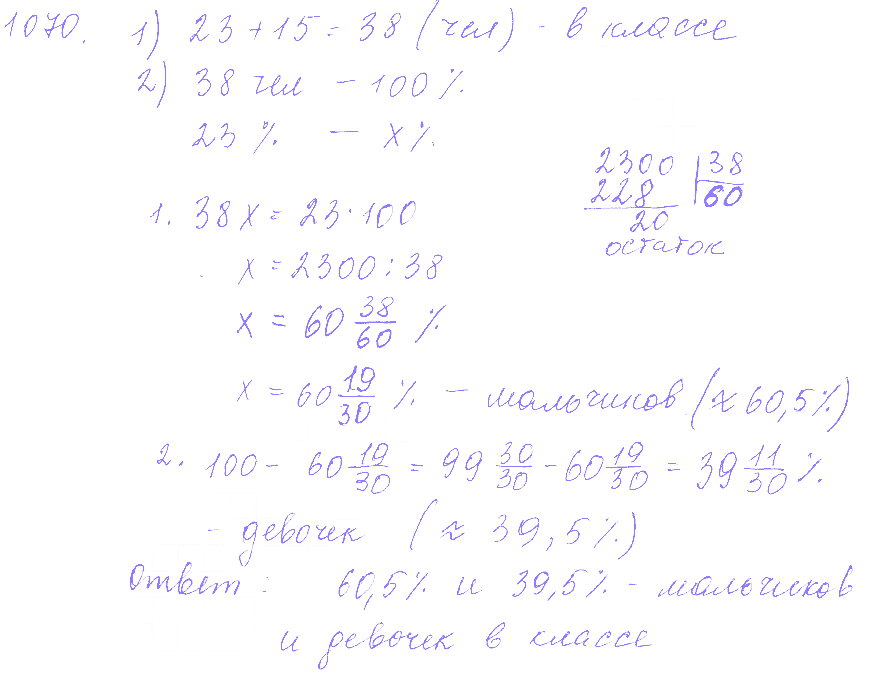 1070. 1) 23 + 15 = 38 (чел) - в классе
2) 38 чел — 100 %
23 % — x %
2300 | 38
228 | 60
20
остаток
1. 38 x = 23 · 100
x = 2300 : 38
x = 60 38/60 %
x = 60 19/30 % — мальчиков (≈ 60,5 %)
2. 100 - 60 19/30 = 99 30/30 - 60 19/30 = 39 11/30 %
- девочек (≈ 39,5 %)
Ответ : 60,5 % и 39,5 % - мальчиков
и девочек в классе